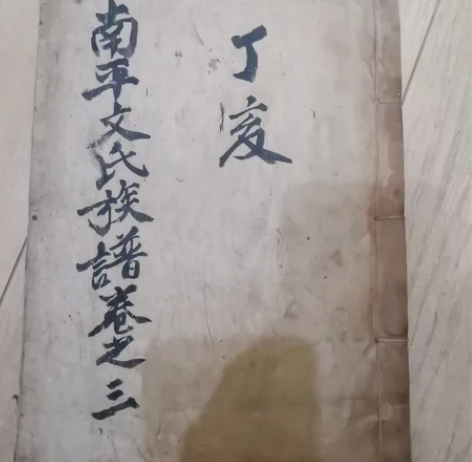 丁亥
南平文氏族譜卷之三